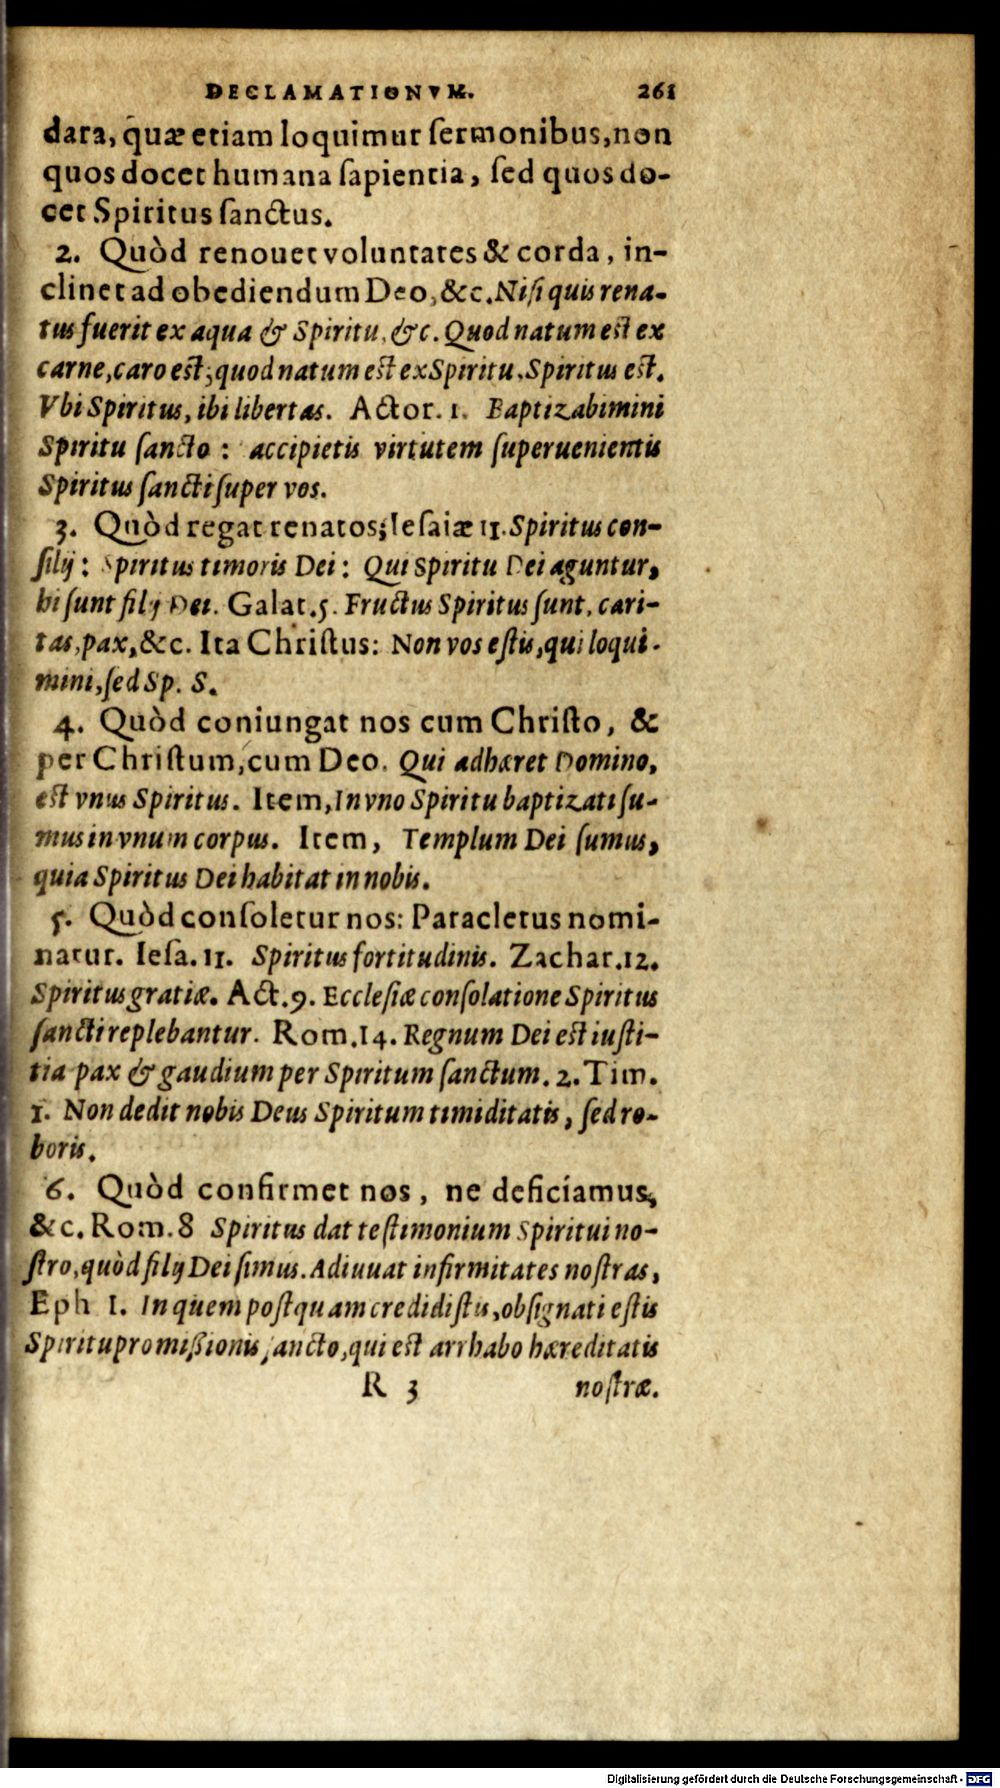 DECLAMATIONVM. 261
data, quæ etiam loquimur ſermonibus, non
quos docet humana ſapientia, ſed quos do-
cet Spiritus ſanctus.
2. Quòd renouet voluntates & corda, in-
clinet ad obediendum Deo, &c. Niſi quis rena-
tus fuerit ex aqua & Spiritu, &c. Quod natum est ex
carne, caro est; quod natum est ex Spiritu, Spiritus est.
Vbi Spiritus, ibi libertas. Actor. 1. Baptizabimini
Spiritu ſancto: accipietis virtutem ſuperuenientis
Spiritus ſancti ſuper vos.
3. Quòd regat renatos; Ieſaiæ 11. Spiritus con-
ſilij: Spiritus timoris Dei: Qui Spiritu Dei aguntur,
hi ſunt filij Dei. Galat. 5. Fructus Spiritus ſunt, cari-
tas, pax, &c. Ita Chriſtus: Non vos eſtis, qui loqui-
mini, ſed Sp. S.
4. Quòd coniungat nos cum Chriſto, &
per Chriſtum, cum Deo. Qui adhæret Domino,
est vnus Spiritus. Item, In vno Spiritu baptizati ſu-
mus in vnum corpus. Item, Templum Dei ſumus,
quia Spiritus Dei habitat in nobis.
5. Quòd conſoletur nos: Paracletus nomi-
natur. Ieſa. 11. Spiritus fortitudinis. Zachar. 12.
Spiritus gratiæ. Act. 9. Eccleſiæ conſolatione Spiritus
ſancti replebantur. Rom. 14. Regnum Dei est iuſti-
tia pax & gaudium per Spiritum ſanctum. 2. Tim.
1. Non dedit nobis Deus Spiritum timiditatis, ſed ro-
boris.
6. Quòd confirmet nos, ne deficiamus,
&c. Rom. 8 Spiritus dat teſtimonium Spiritui no-
ſtro, quòd filij Dei ſimus. Adiuuat infirmitates noſtras,
Eph 1. In quem poſtquam credidiſtis, obſignati eſtis
Spiritu promißionis ſancto, qui est arrhabo hæreditatis
R 3 noſtræ.
Digitalisierung gefördert durch die Deutsche Forschungsgemeinschaft - DFG